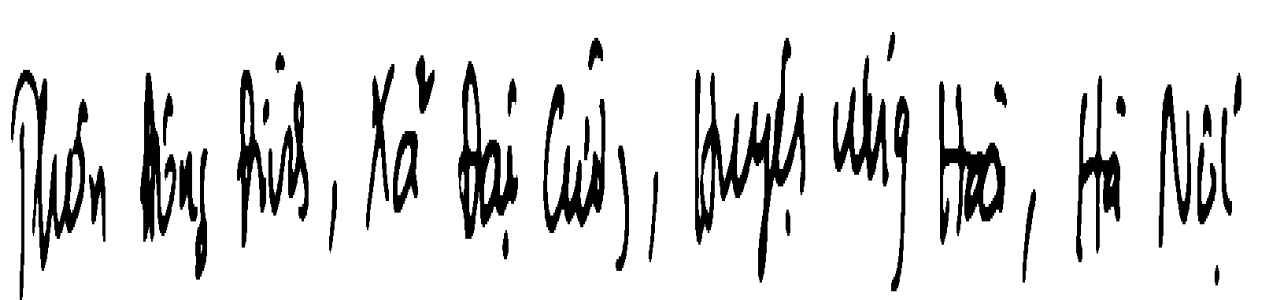 Thôn Đông Đình, Xã Đại Cường, Huyện Ứng Hoà, Hà Nội